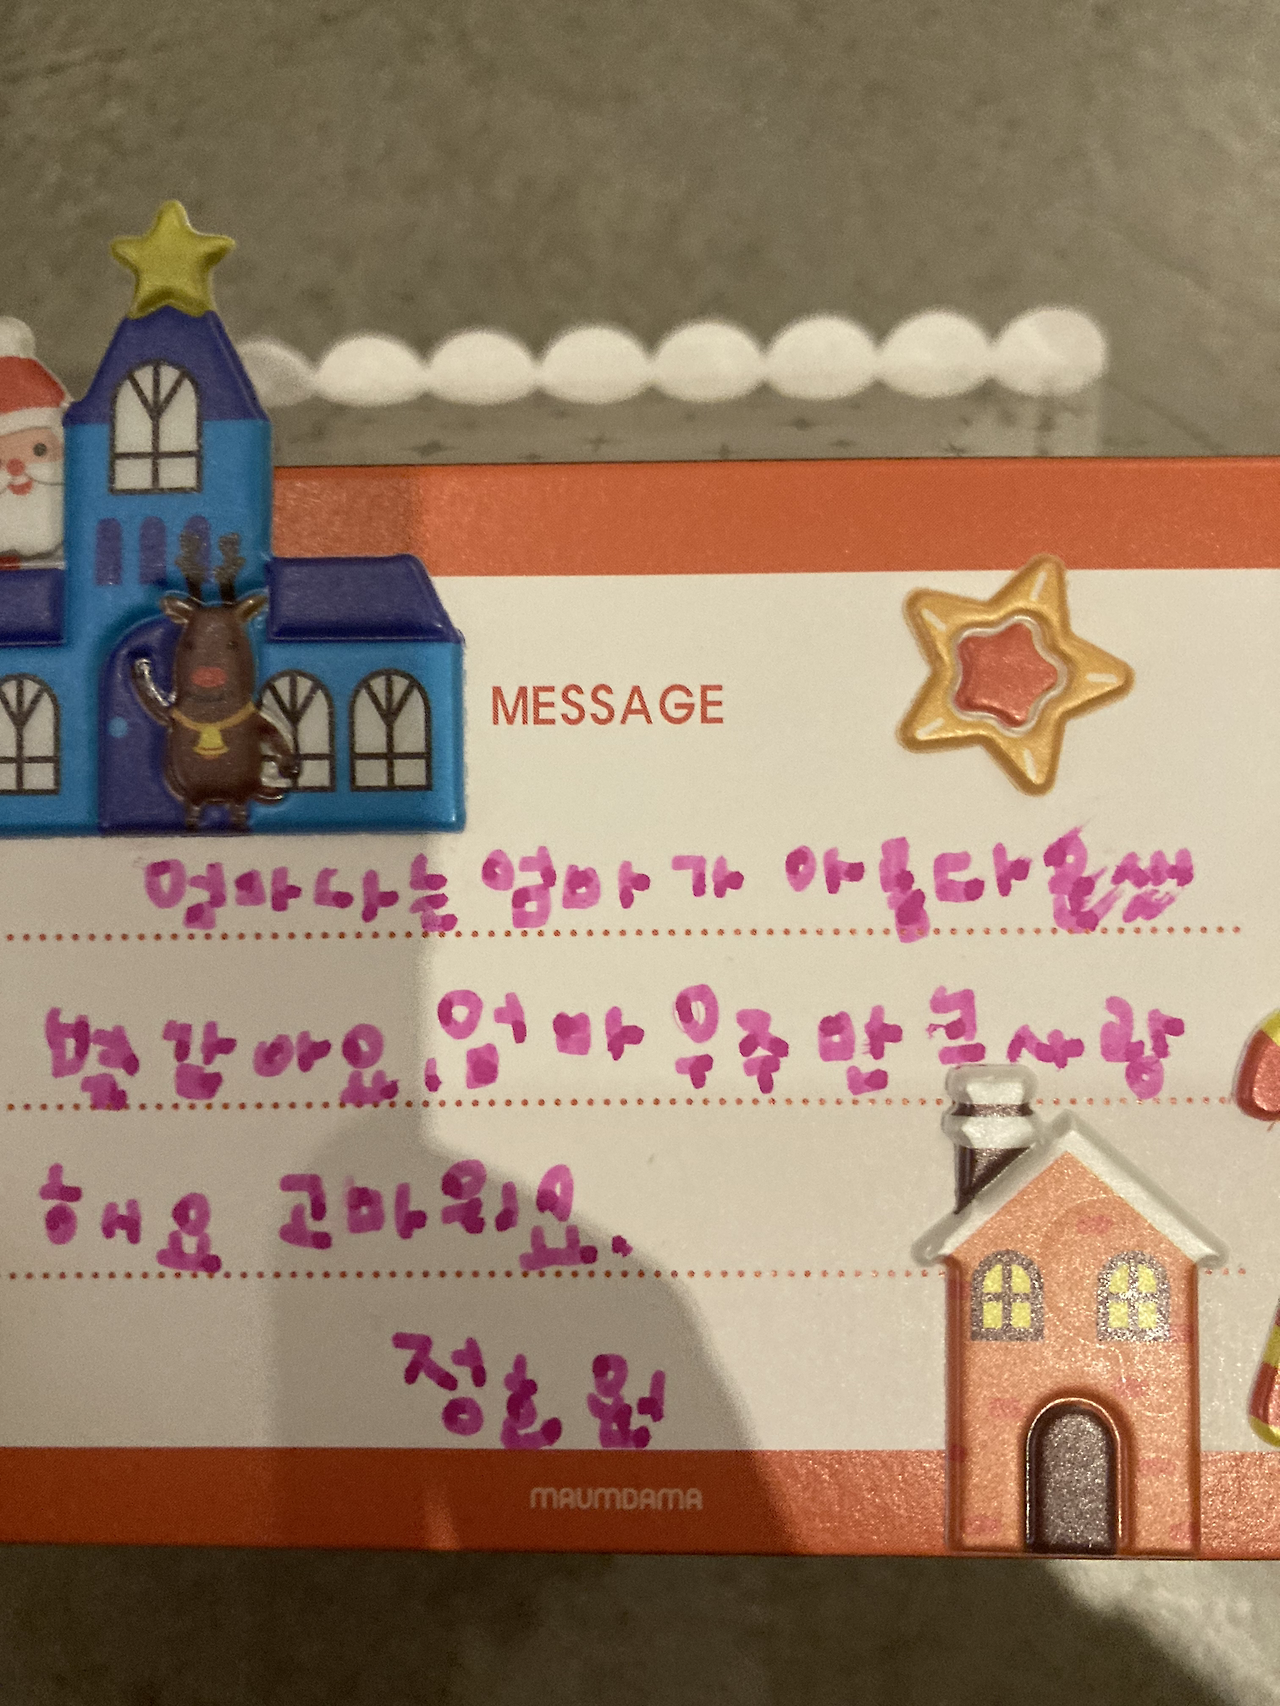 MESSAGE
엄마 나는 엄마가 아름다운
별 같아요. 엄마 우주만큼 사랑
해요 고마워요.
정은원
MAUMDAMA